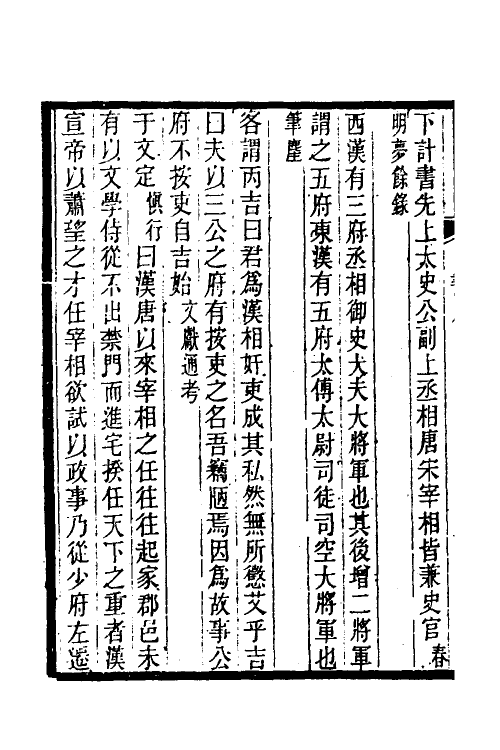 下計書先上太史公副上丞相唐宋宰相皆兼史官春
明夢餘錄
西漢有三府丞相御史大夫大將軍也其後增二將軍
謂之五府東漢有五府太傅太尉司徒司空大將軍也
筆麈
客謂丙吉曰君爲漢相奸吏成其私然無所懲艾乎吉
曰夫以三公之府有按吏之名吾竊陋焉因爲故事公
府不按吏自吉始文獻通考
于文定愼行曰漢唐以來宰相之任往往起家郡邑未
有以文學侍從不出禁門而進宅揆任天下之重者漢
宣帝以蕭望之才任宰相欲試以政事乃從少府左遷